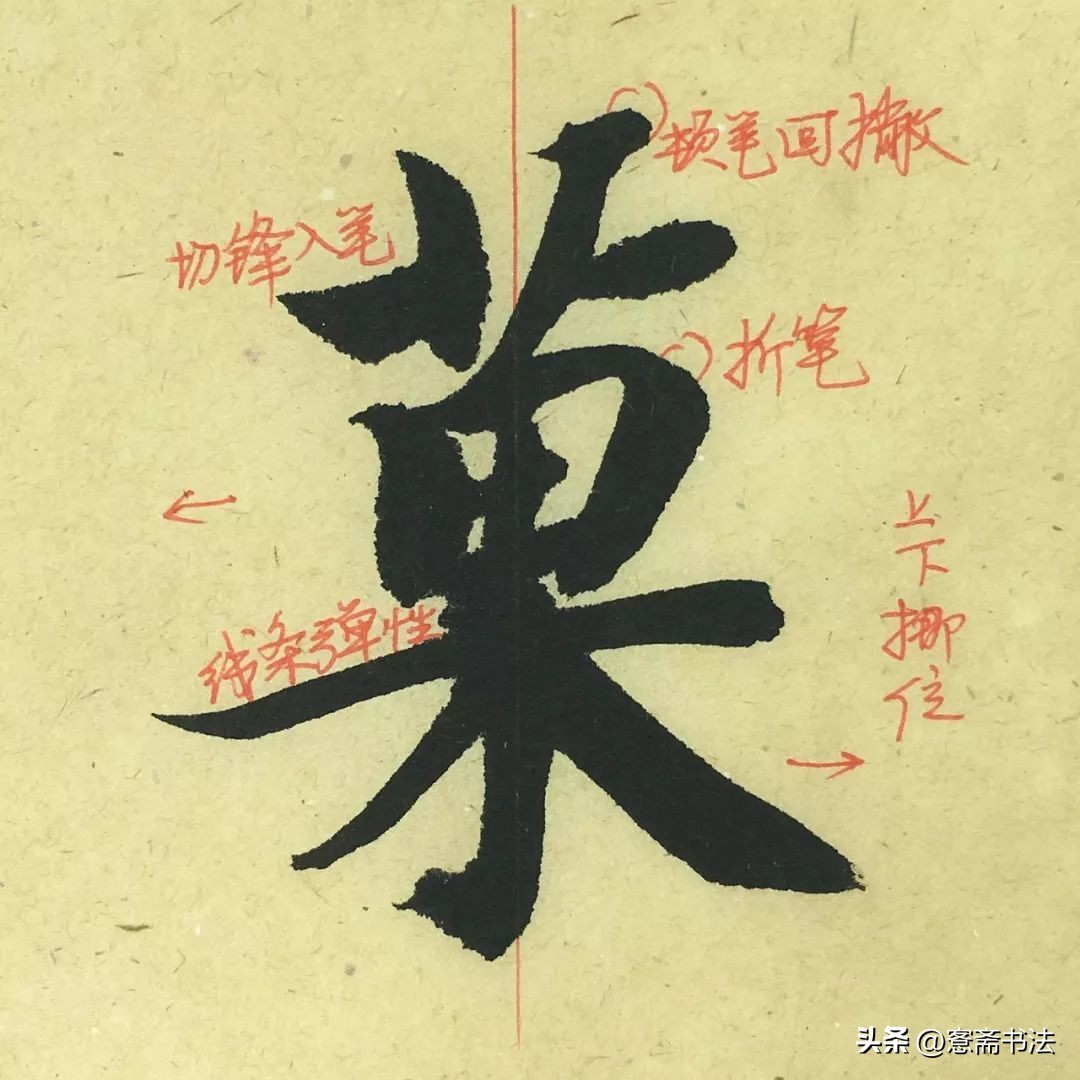 菓
顿笔回撤
切锋入笔
折笔
线条弹性
上下挪位
头条 @愙斋书法